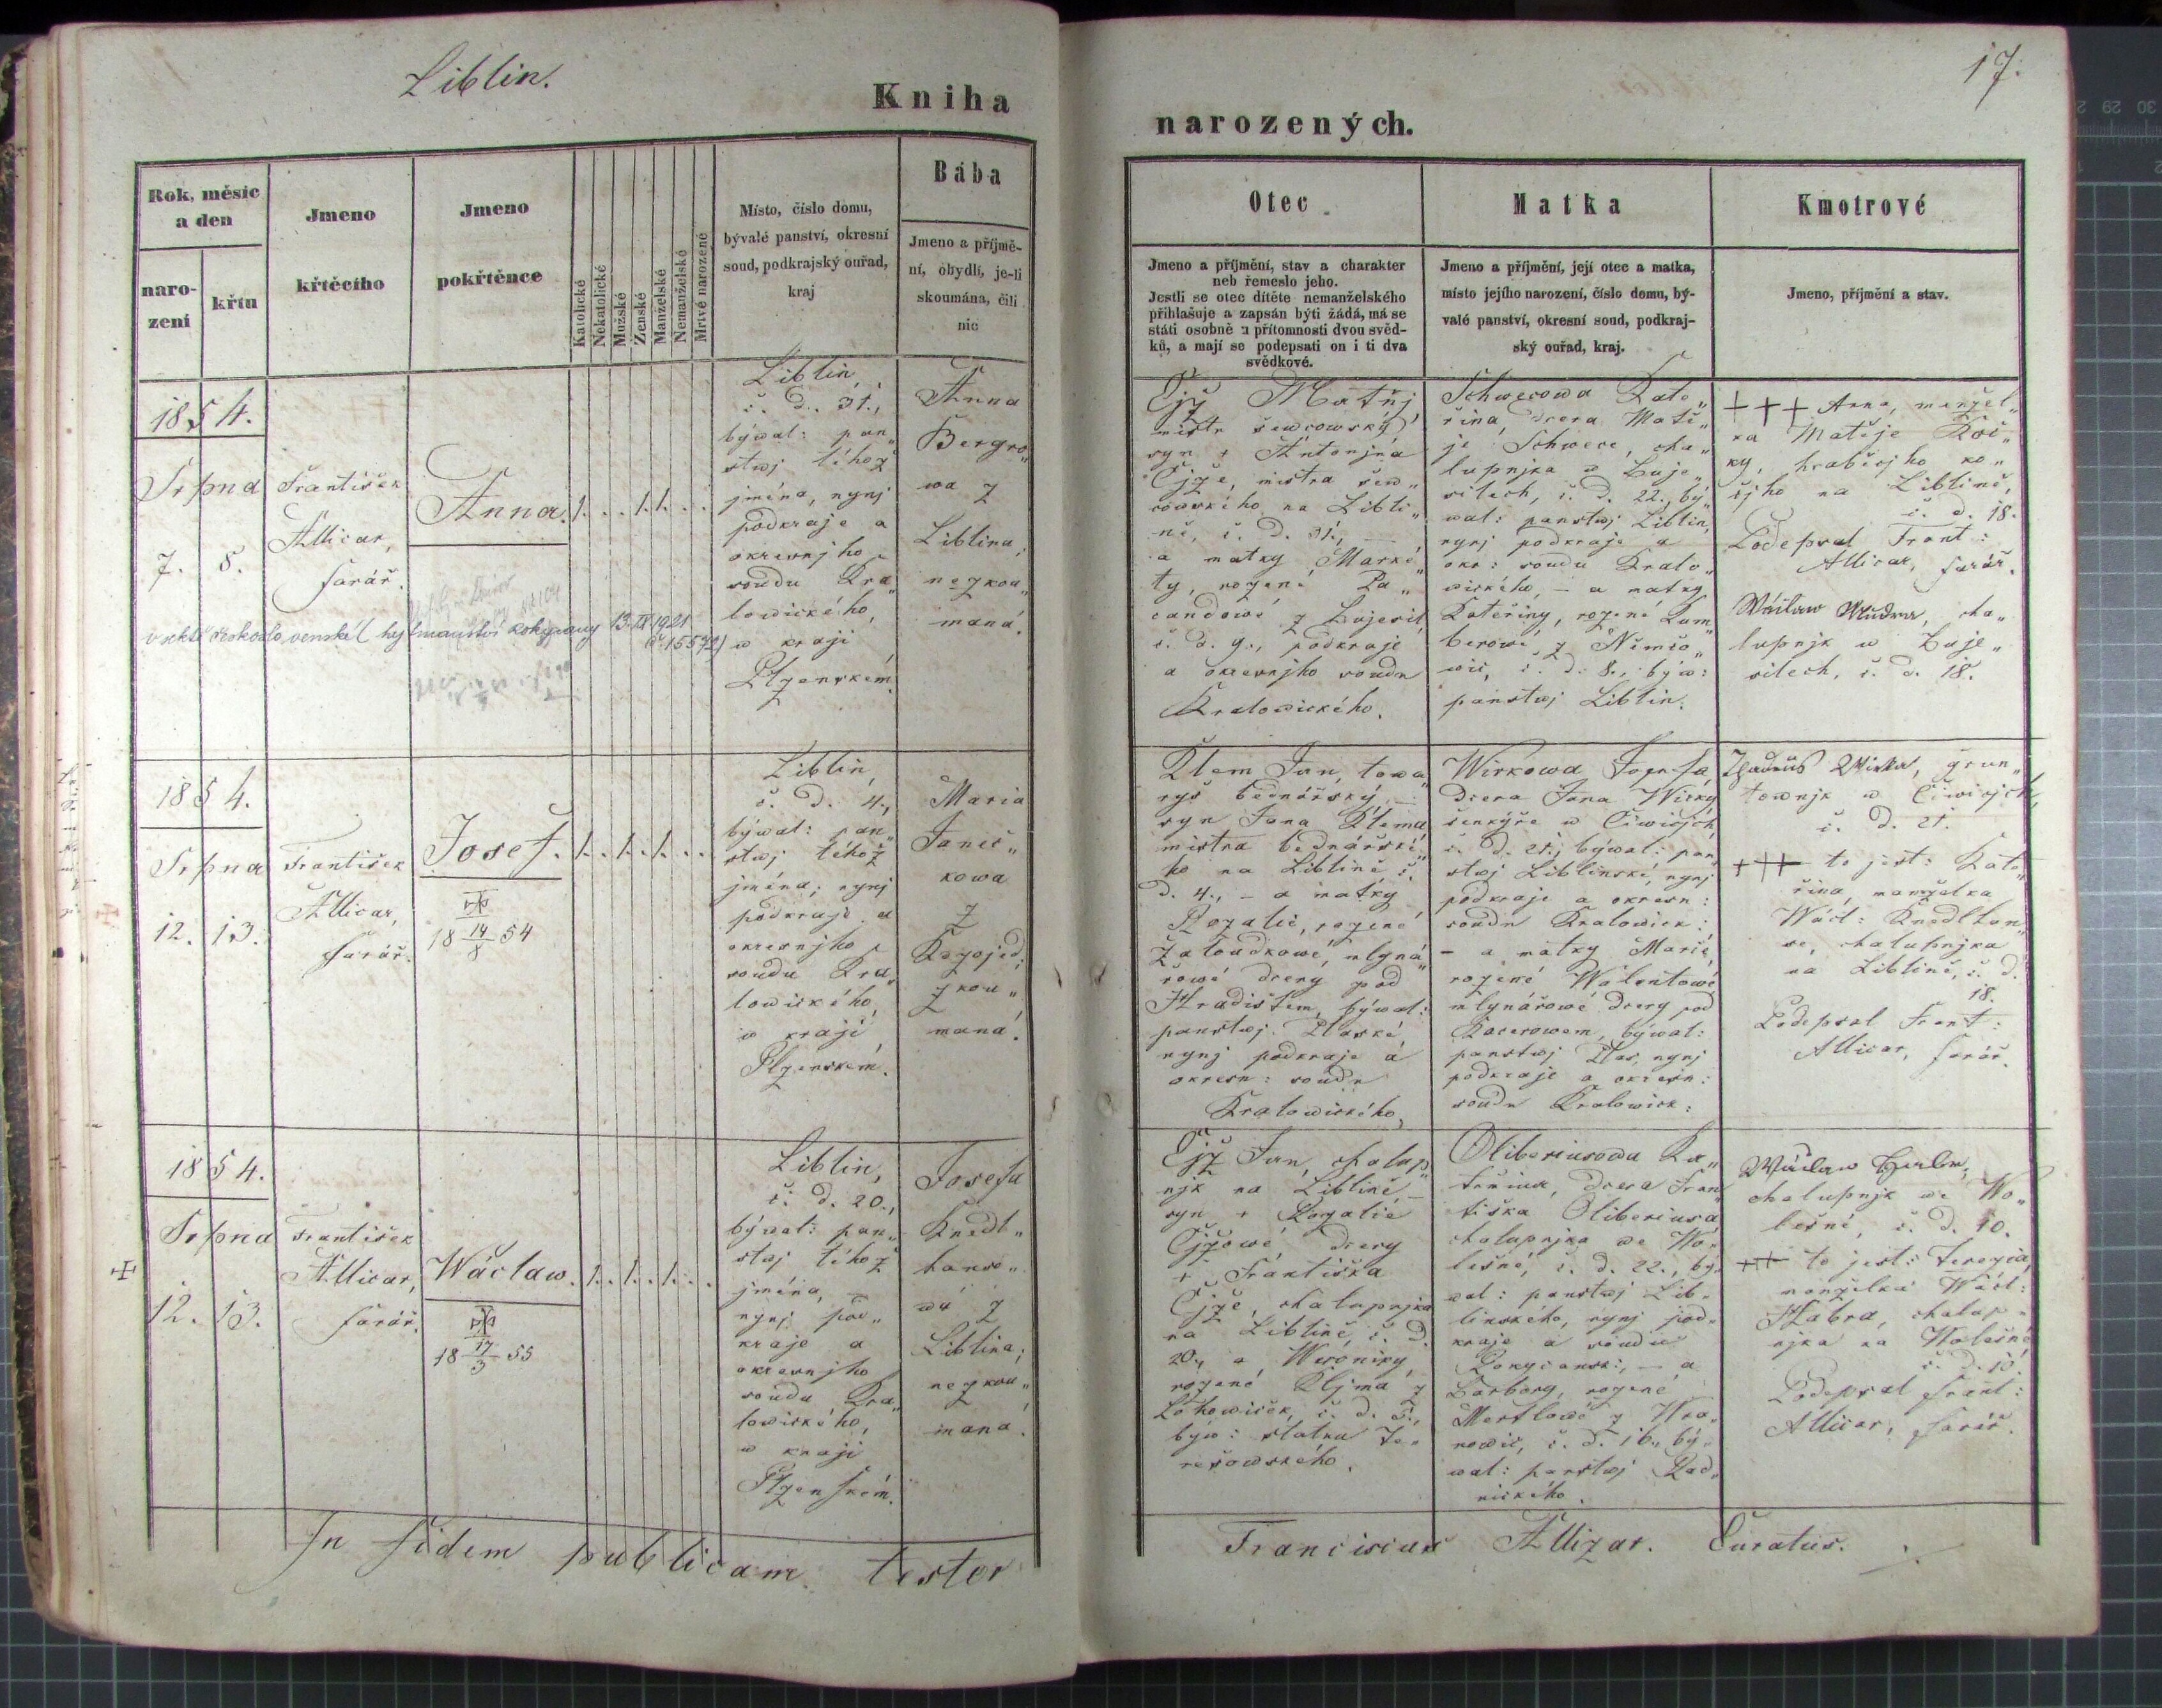 Liblin.
Kniha
narozených.
17.
Rok, měsíc
a den
naro-
zení
křtu
Jmeno
křtěcího
Jmeno
pokřtěnce
Katolické
Nekatolické
Mužské
Ženské
Manželské
Nemanželské
Mrtvě narozené
Místo, číslo domu,
bývalé panství, okresní
soud, podkrajský ouřad,
kraj
Bába
Jmeno a příjmě-
ní, obydlí, je-li
skoumána, čili
nic
Otec
Jmeno a příjmění, stav a charakter
neb řemeslo jeho.
Jestli se otec dítěte nemanželského
přihlašuje a zapsán býti žádá, má se
státi osobně u přítomnosti dvou svěd-
ků, a mají se podepsati on i ti dva
svědkové.
Matka
Jmeno a příjmění, její otec a matka,
místo jejího narození, číslo domu, bý-
valé panství, okresní soud, podkraj-
ský ouřad, kraj.
Kmotrové
Jmeno, příjmění a stav.
1854.
Srpna
7. 8.
František
Allicar,
farář.
Anna.
1. . . 1. 1. . .
13.IX 1921
Liblin,
č. d. 31.,
býwal: pan„
stwj téhož
jména, nynj
podkraje a
okresnjho
soudu Kra„
lowického,
w kraji
Plzenském.
Anna
Bergro„
wa z
Liblina,
nezkou„
maná.
Čjž Matěj,
mistr ševcowský,
syn + Antonjna
Čjže, mistra šew„
cowského na Libli„
ně, č. d. 31., —
a matky Marké„
ty, rozené Pa„
candowé z Bujesil,
č. d. 9., podkraje
a okresnjho soudu
Kralowického.
Schwecowa Kate„
řina, dcera Matě„
je Schwece, cha„
lupnjka w Buje„
silech, č. d. 22., bý„
wal: panstwj Liblin,
nynj podkraje a
okr: soudu Kralo„
wického, — a matky
Kateřiny, rozené Kum„
berowé z Němčo„
wic, č. d. 8., býw:
panstwj Liblin.
+++ Anna, manžel„
ka Matěje Koč„
ky, hraběcjho ko„
čjho na Liblině,
č. d. 18.
Podepsal Frant:
Allicar, farář.
Wáclaw Mudra, cha„
lupnjk w Buje„
silech, č. d. 18.
1854.
Srpna
12. 13.
František
Allicar,
farář.
Josef.
18 14/8 54
1. . 1. . 1. . .
Liblin,
č. d. 4.,
býwal: pan„
stwj téhož
jména; nynj
podkraje a
okresnjho
soudu Kra„
lowického,
w kraji
Plzenském.
Maria
Janeč„
kowa
z
Kozojed;
zkou„
maná.
Klem Jan, towa„
ryš bednářský, —
syn Jana Klema
mistra bednářské„
ho na Liblině č.
d. 4., — a matky
Rozalie, rozené
Žaloudkowé, mlyná„
řowé dcery pod
Hradistem, býwal:
panstwj Plaské
nynj podkraje a
okresn: soudu
Kralowického.
Wirkowa Josefa,
dcera Jana Wirky
šenkýře w Čiwicjch,
č. d. 21., býwal: pan„
stwj Liblinské, nynj
podkraje a okresn:
soudu Kralowick:
— a matky Marie,
rozené Walentowé
mlynářowé dcery pod
Kacerowem, býwal:
panstwj Plas, nynj
podkraje a okresn:
soudu Kralowick:
Thadeus Wirka, grun„
townjk w Čiwicjch,
č. d. 21.
+++ to jest: Kate„
řina, manželka
Wácl: Knedlhan„
se, chalupnjka
na Liblině, č. d.
18.
Podepsal Frant:
Allicar, farář.
1854.
Srpna
12. 13.
František
Allicar,
farář.
Wáclaw.
18 17/3 55
1. . 1. . 1. . .
Liblin,
č. d. 20.,
býwal: pan„
stwj téhož
jména,
nynj pod„
kraje a
okresnjho
soudu Kra„
lowického,
w kraji
Plzenském.
Josefa
Knedl„
hanso„
wá z
Liblina;
nezkou„
maná.
Čjž Jan, chalup„
njk na Liblině, —
syn + Rozalie
Čjžowé, dcery
+ Františka
Čjže, chalupnjka
na Liblině, č. d.
20., a Weroniky,
rozené Kljma z
Lohowiček, č. d. 3.,
býw: statku Te„
rešowského.
Oliberiusowa Ka„
teřina, dcera Fran„
tiška Oliberiusa
chalupnjka we Wo„
lešné, č. d. 22., bý„
wal: panstwj Lib„
linského, nynj pod„
kraje a soudu
Rokycansk:, — a
Barbory, rozené
Mertlowé z Wra„
nowic, č. d. 16., bý„
wal: panstwj Rad„
nického.
Wáclaw
chalupnjk we Wo„
lešné, č. d. 10.
+++ to jest: Terezia,
manželka Wácl:
Habra, chalup„
njka na Wolešné
č. d. 10.
Podepsal Frant:
Allicar, farář.
In fidem publicam testor
Franciscus Allizar. Curatus.